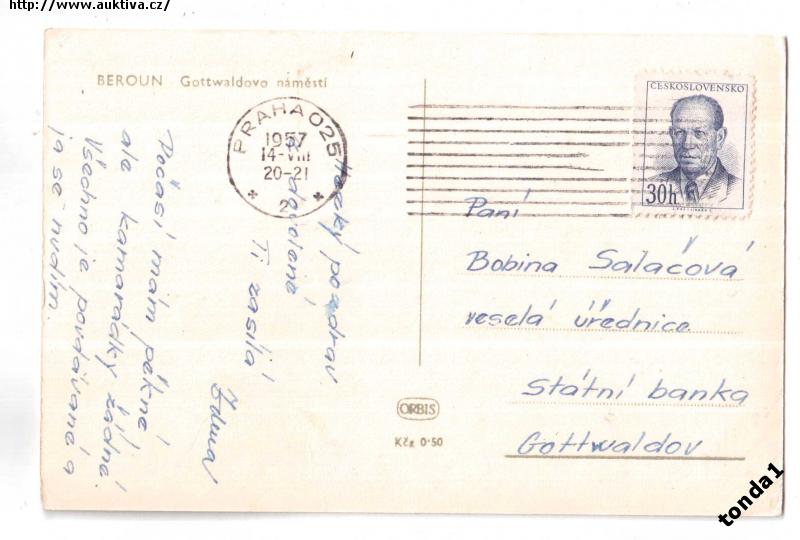 http://www.auktiva.cz/
BEROUN Gottwaldovo náměstí
PRAHA 025
1957
14-VIII
20-21
2
ČESKOSLOVENSKO
30h
Hezký pozdrav
z dovolené
Ti zasílá
Zdena
Počasí mám pěkné
ale kamarádky žádné.
Všechno je povdávané a
já se nudím.
Paní
Bobina Salačová
veselá úřednice
Státní banka
Gottwaldov
ORBIS
Kčs 0·50
tonda1